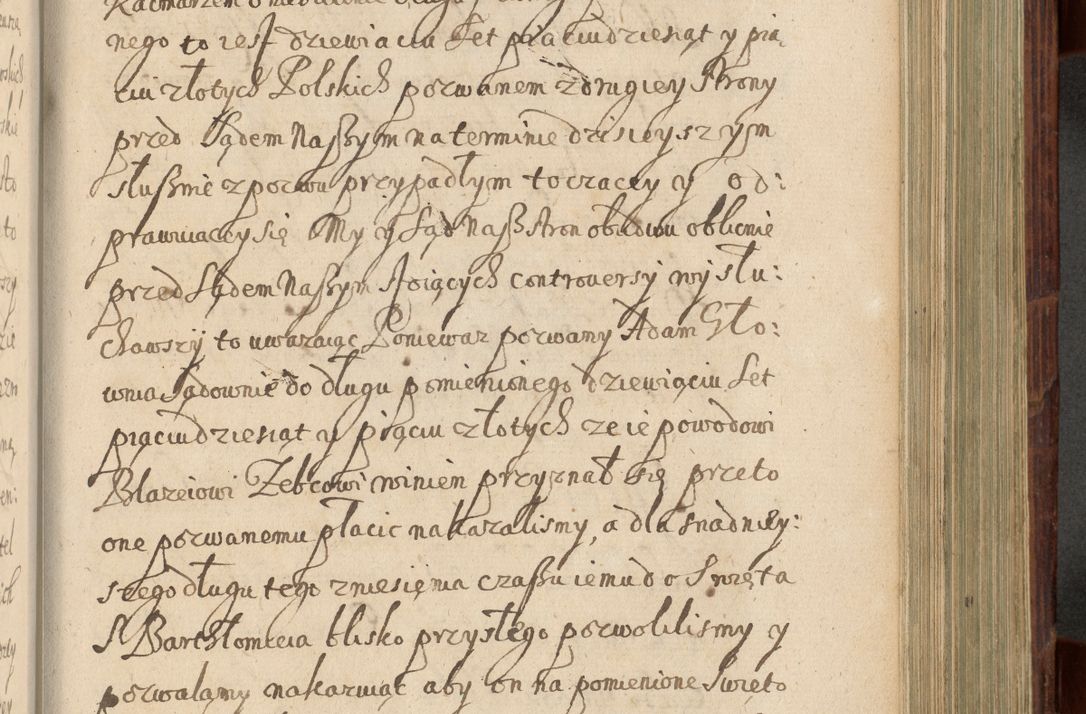 nego to iest dziewiąciu Set piąciudziesiąt y pią
ciu złotych Polskich pozwanem z drugiey strony
przed Sądem Naszym na terminie dzisieyszym
słusznie z pozwu przypadłym toczącey y od:
prawuiącey się My y Sąd Nasz stron obudwu oblicznie
przed Sądem Naszym stoiących controuersy wysłu:
chawszy to uwazaiąc Poniewaz pozwany Adam Gło:
wnia Sądownie do długu pomienionego dziewiąciu Set
piąciudziesiąt y piąciu złotych ze ie powodowi
Blazeiowi Zebrowi winien przyznał się przeto
one pozwanemu płacic nakazalismy, a dla snadniey:
szego długu tego zniesięnia czassu iemu do Swięta
S Barthłomieia blisko przyszłego pozwolilismy y
pozwalamy nakazuiąc aby on na pomienione Swięto